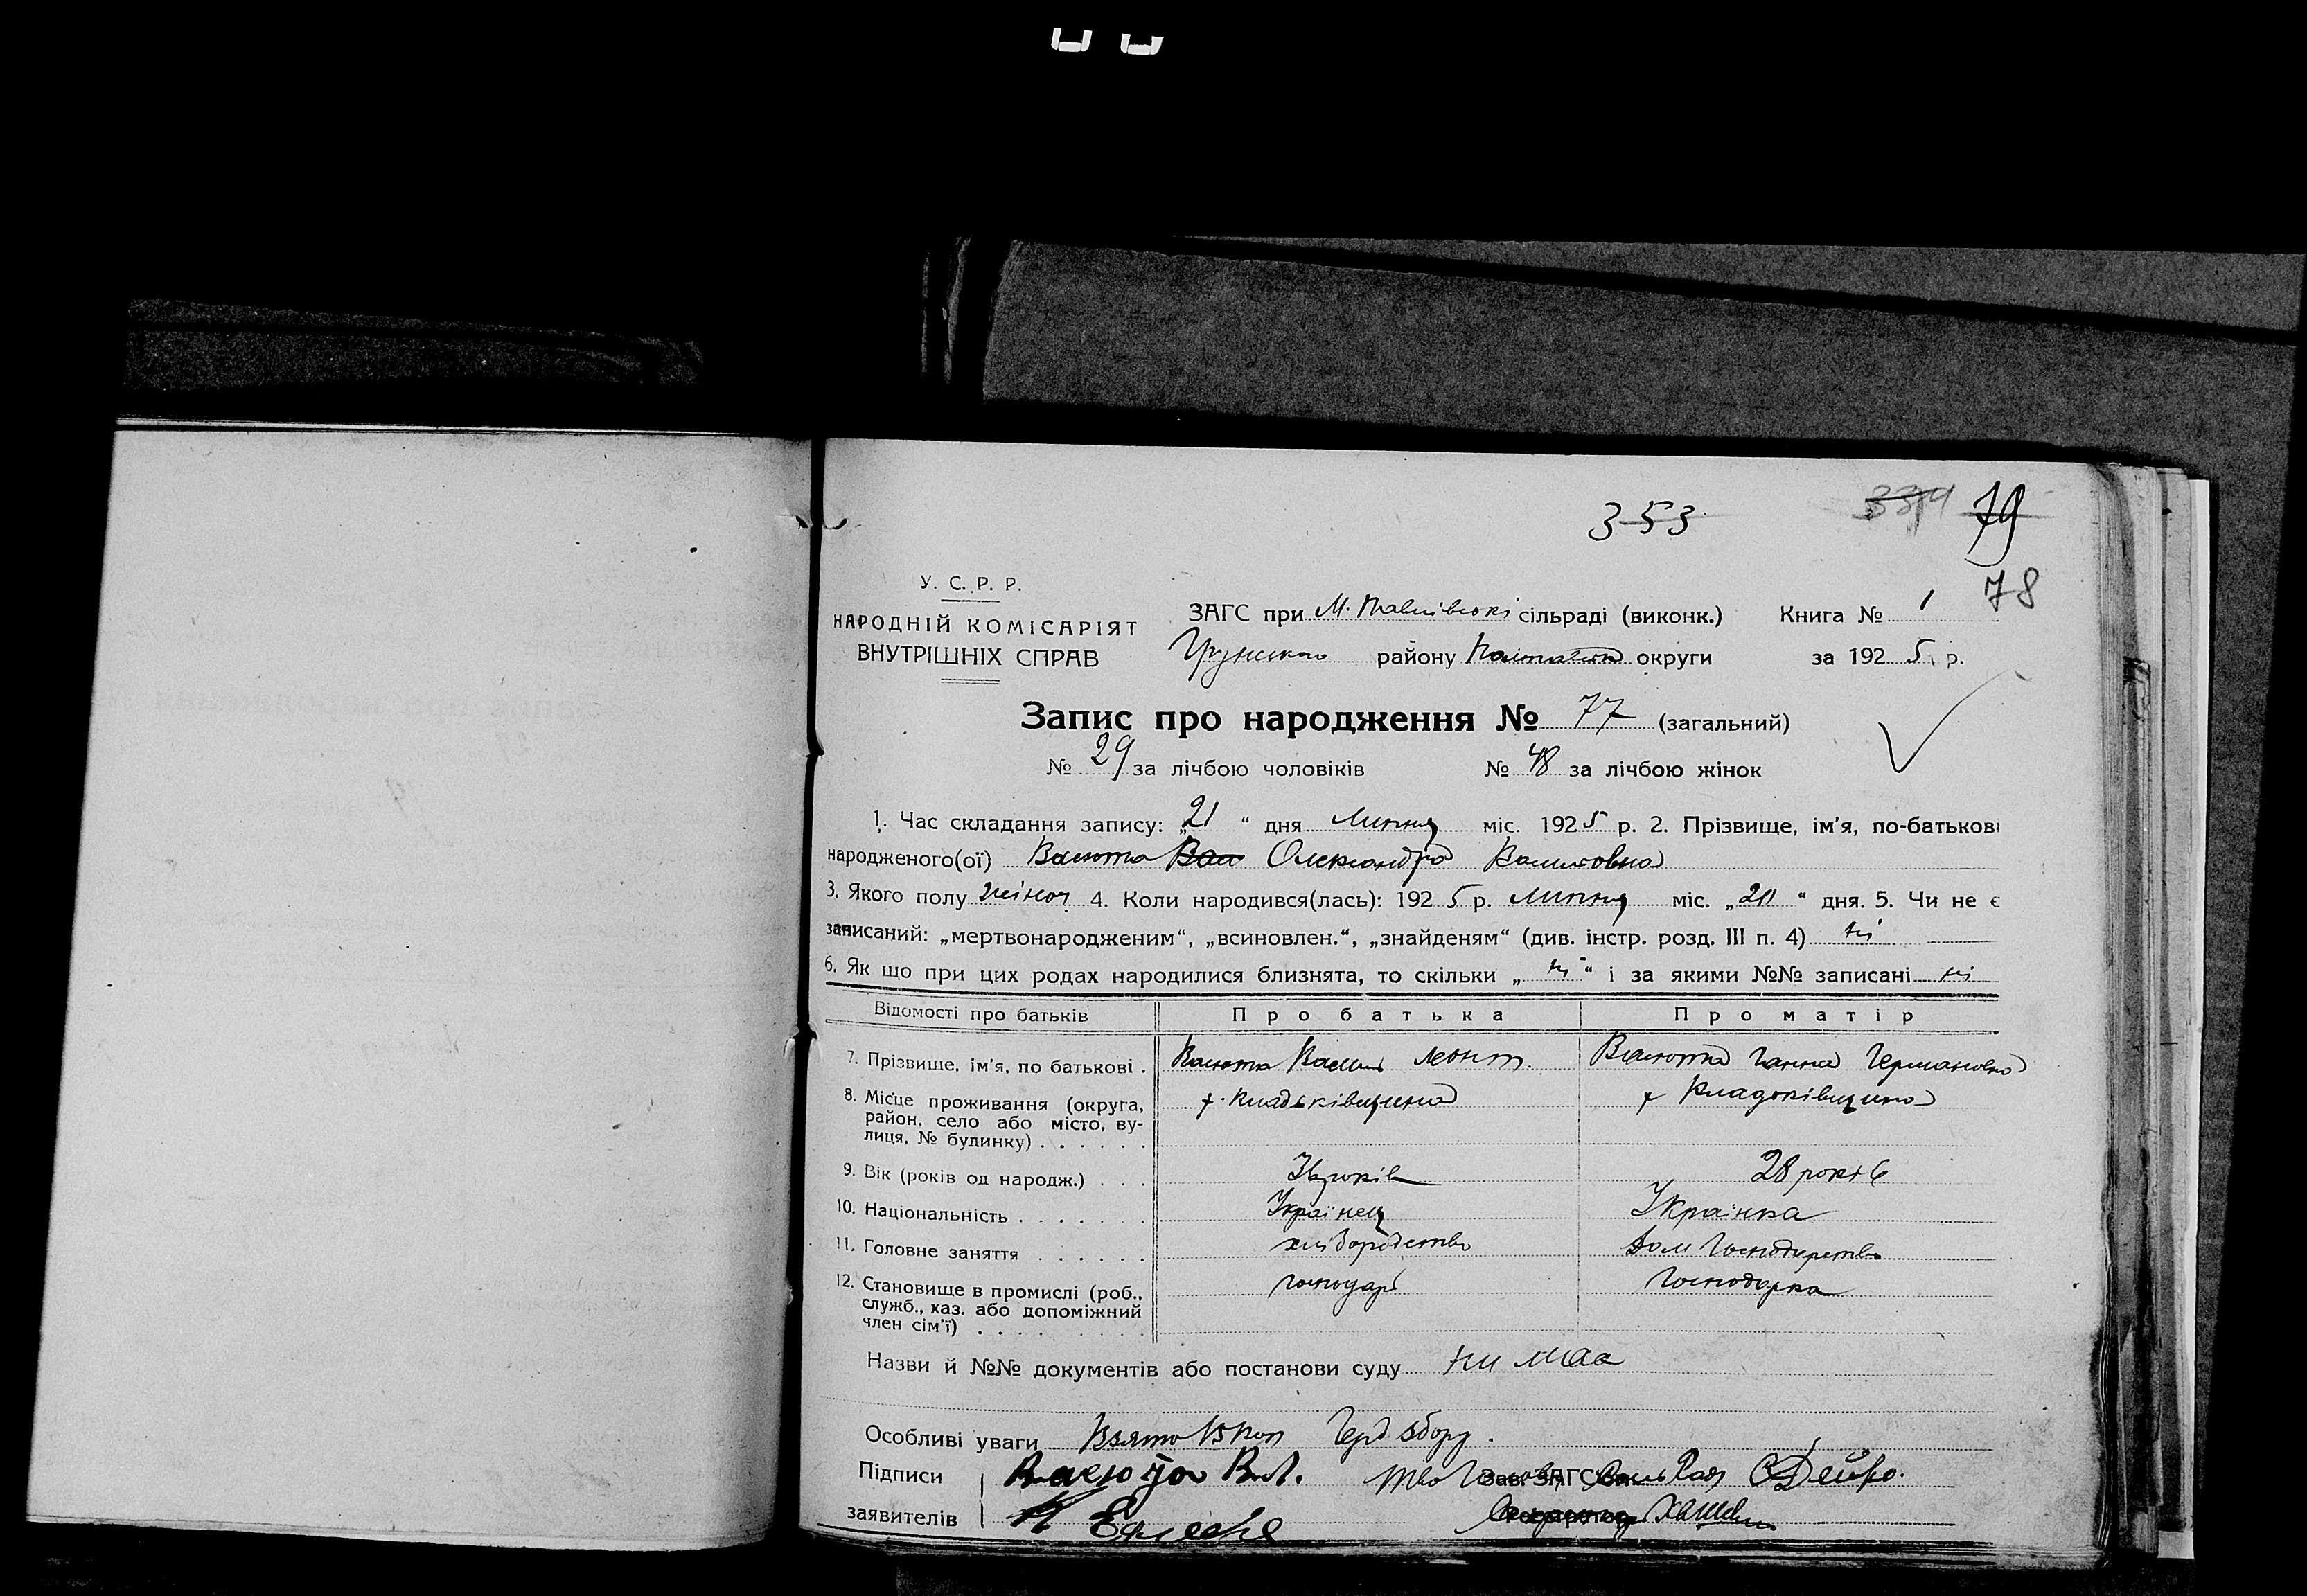 353 334 79
78
У. С. Р. Р.
НАРОДНІЙ КОМІСАРІЯТ
ВНУТРІШНІХ СПРАВ
ЗАГС при М. Павлівські сільраді (виконк.) Книга № 1
Грунського району Полтавськ округи за 1925 р.
Запис про народження № 77 (загальний)
№ 29 за лічбою чоловіків № 48 за лічбою жінок
1. Час складання запису: „21“ дня Липня міс. 1925 р. 2. Прізвище, ім'я, по-батькові
народженого(ої) Васюта Вас Олександра Васильовна
3. Якого полу жіноч. 4. Коли народився(лась): 1925 р. Липня міс. „20“ дня. 5. Чи не є
записаний: „мертвонародженим“, „всиновлен.“, „знайденям“ (див. інстр. розд. III п. 4) ні
6. Як що при цих родах народилися близнята, то скільки „ні“ і за якими №№ записані ні
Відомості про батьків Про батька Про матір
7. Прізвище, ім'я, по батькові . Васюта Василь Леонт. Васюта Ганна Германовна
8. Місце проживання (округа, х. Кладьківщина х Кладьківщина
район, село або місто, ву-
лиця, № будинку) . . . . . .
9. Вік (років од народж.) . . . років 28 років
10. Національність . . . . . . . Українец Українка
11. Головне заняття . . . . . . хліборобство Дом Господарство
12. Становище в промислі (роб., господарь Господарка
служб., хаз. або допоміжний
член сім'ї) . . . . . . . .
Назви й №№ документів або постанови суду ни має
Особливі уваги Взято 15 коп Герб збору.
Підписи Васюта В. Л. Зав. ЗАГС'ом Сіль Ради Дейко.
заявителів Секретарь